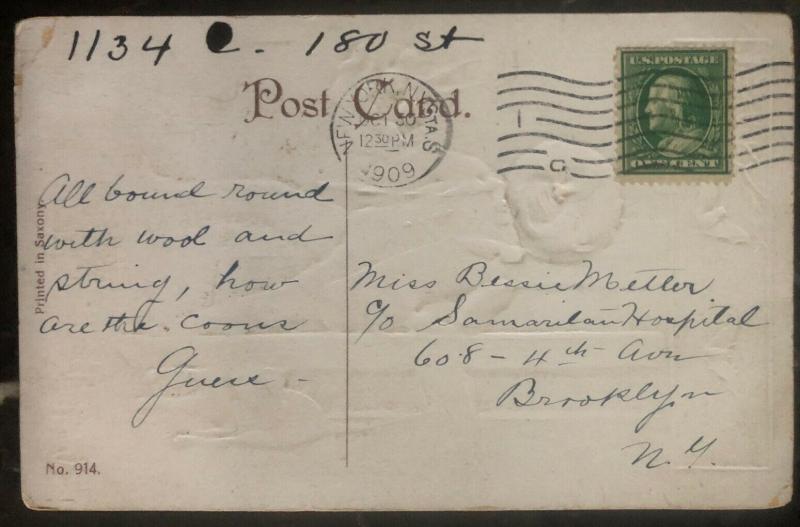 1134 C. 180 St
Post Card.
NEW YORK, N.Y. STA. S
OCT 30
12 30 PM
1909
1
C
U.S. POSTAGE
ONE CENT
All bound round
with wool and
string, how
are the coons
Guess -
Printed in Saxony
No. 914.
Miss Bessie Metler
c/o Samaritan Hospital
608 - 4th Ave
Brooklyn
N.Y.